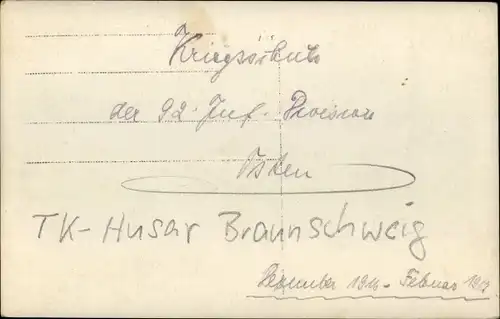 Kriegsschule
der 92. Inf. Division
Osten
TK-Husar Braunschweig
Dezember 1916 - Februar 1917